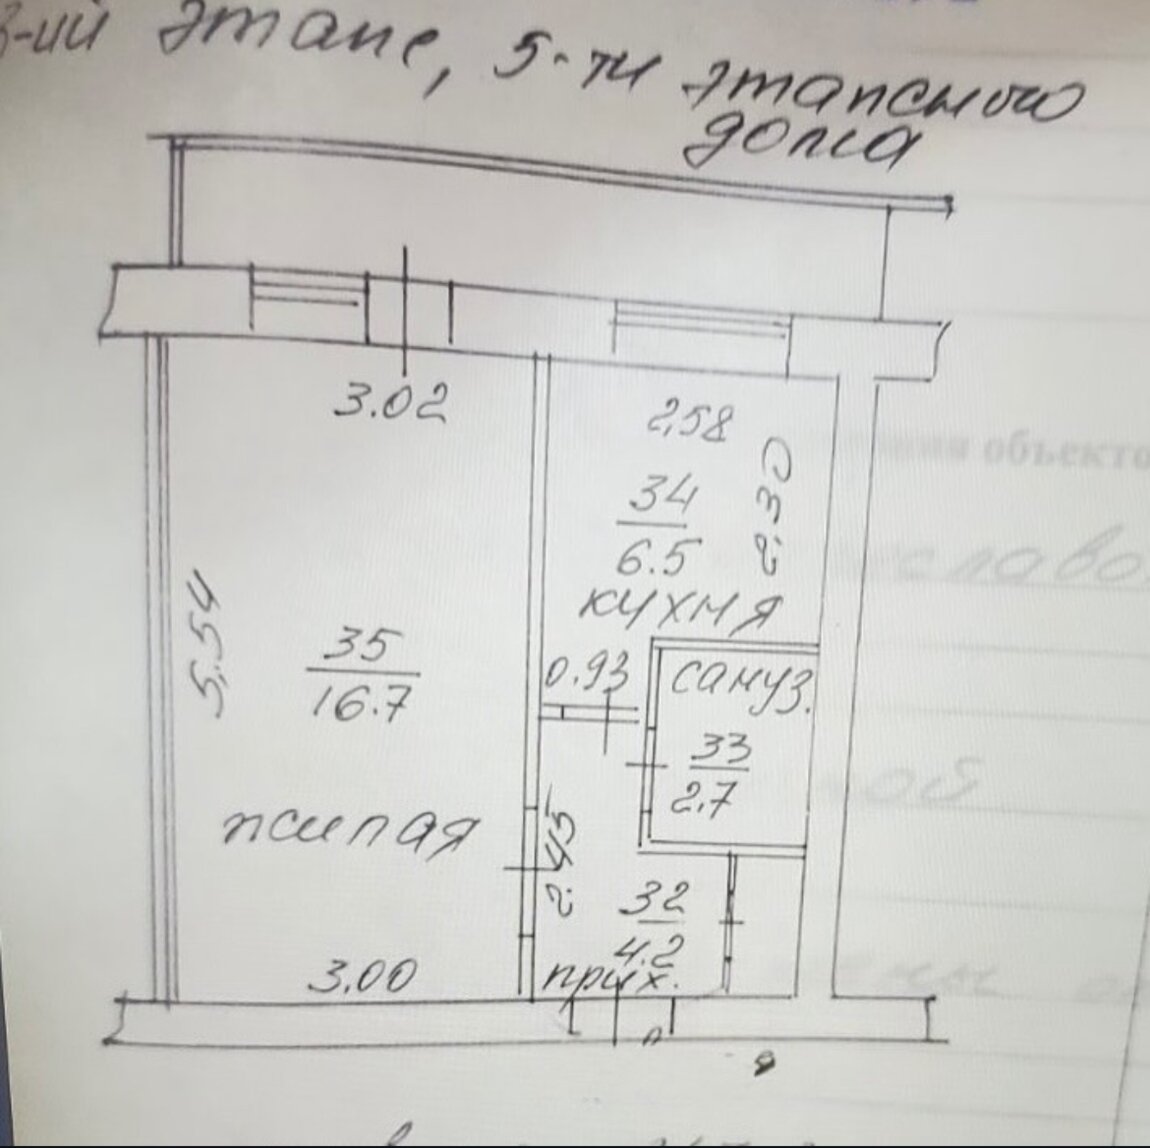 3-ий этаже, 5-ти этапсного
дома
3.02
2,58
2.30
34
6.5
кухня
5.54
35
16.7
0.93
сануз.
33
2.7
жилая
2.45
32
4.2
прих.
3.00
объекто